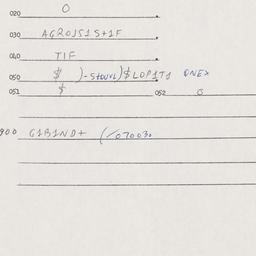 020 0
030 AGR0JS1S+1F
040 TIF
050 $ )-stourl)$LDP1T1 ONEX
051 $ 052 0
900 G1B1ND+ (/070030